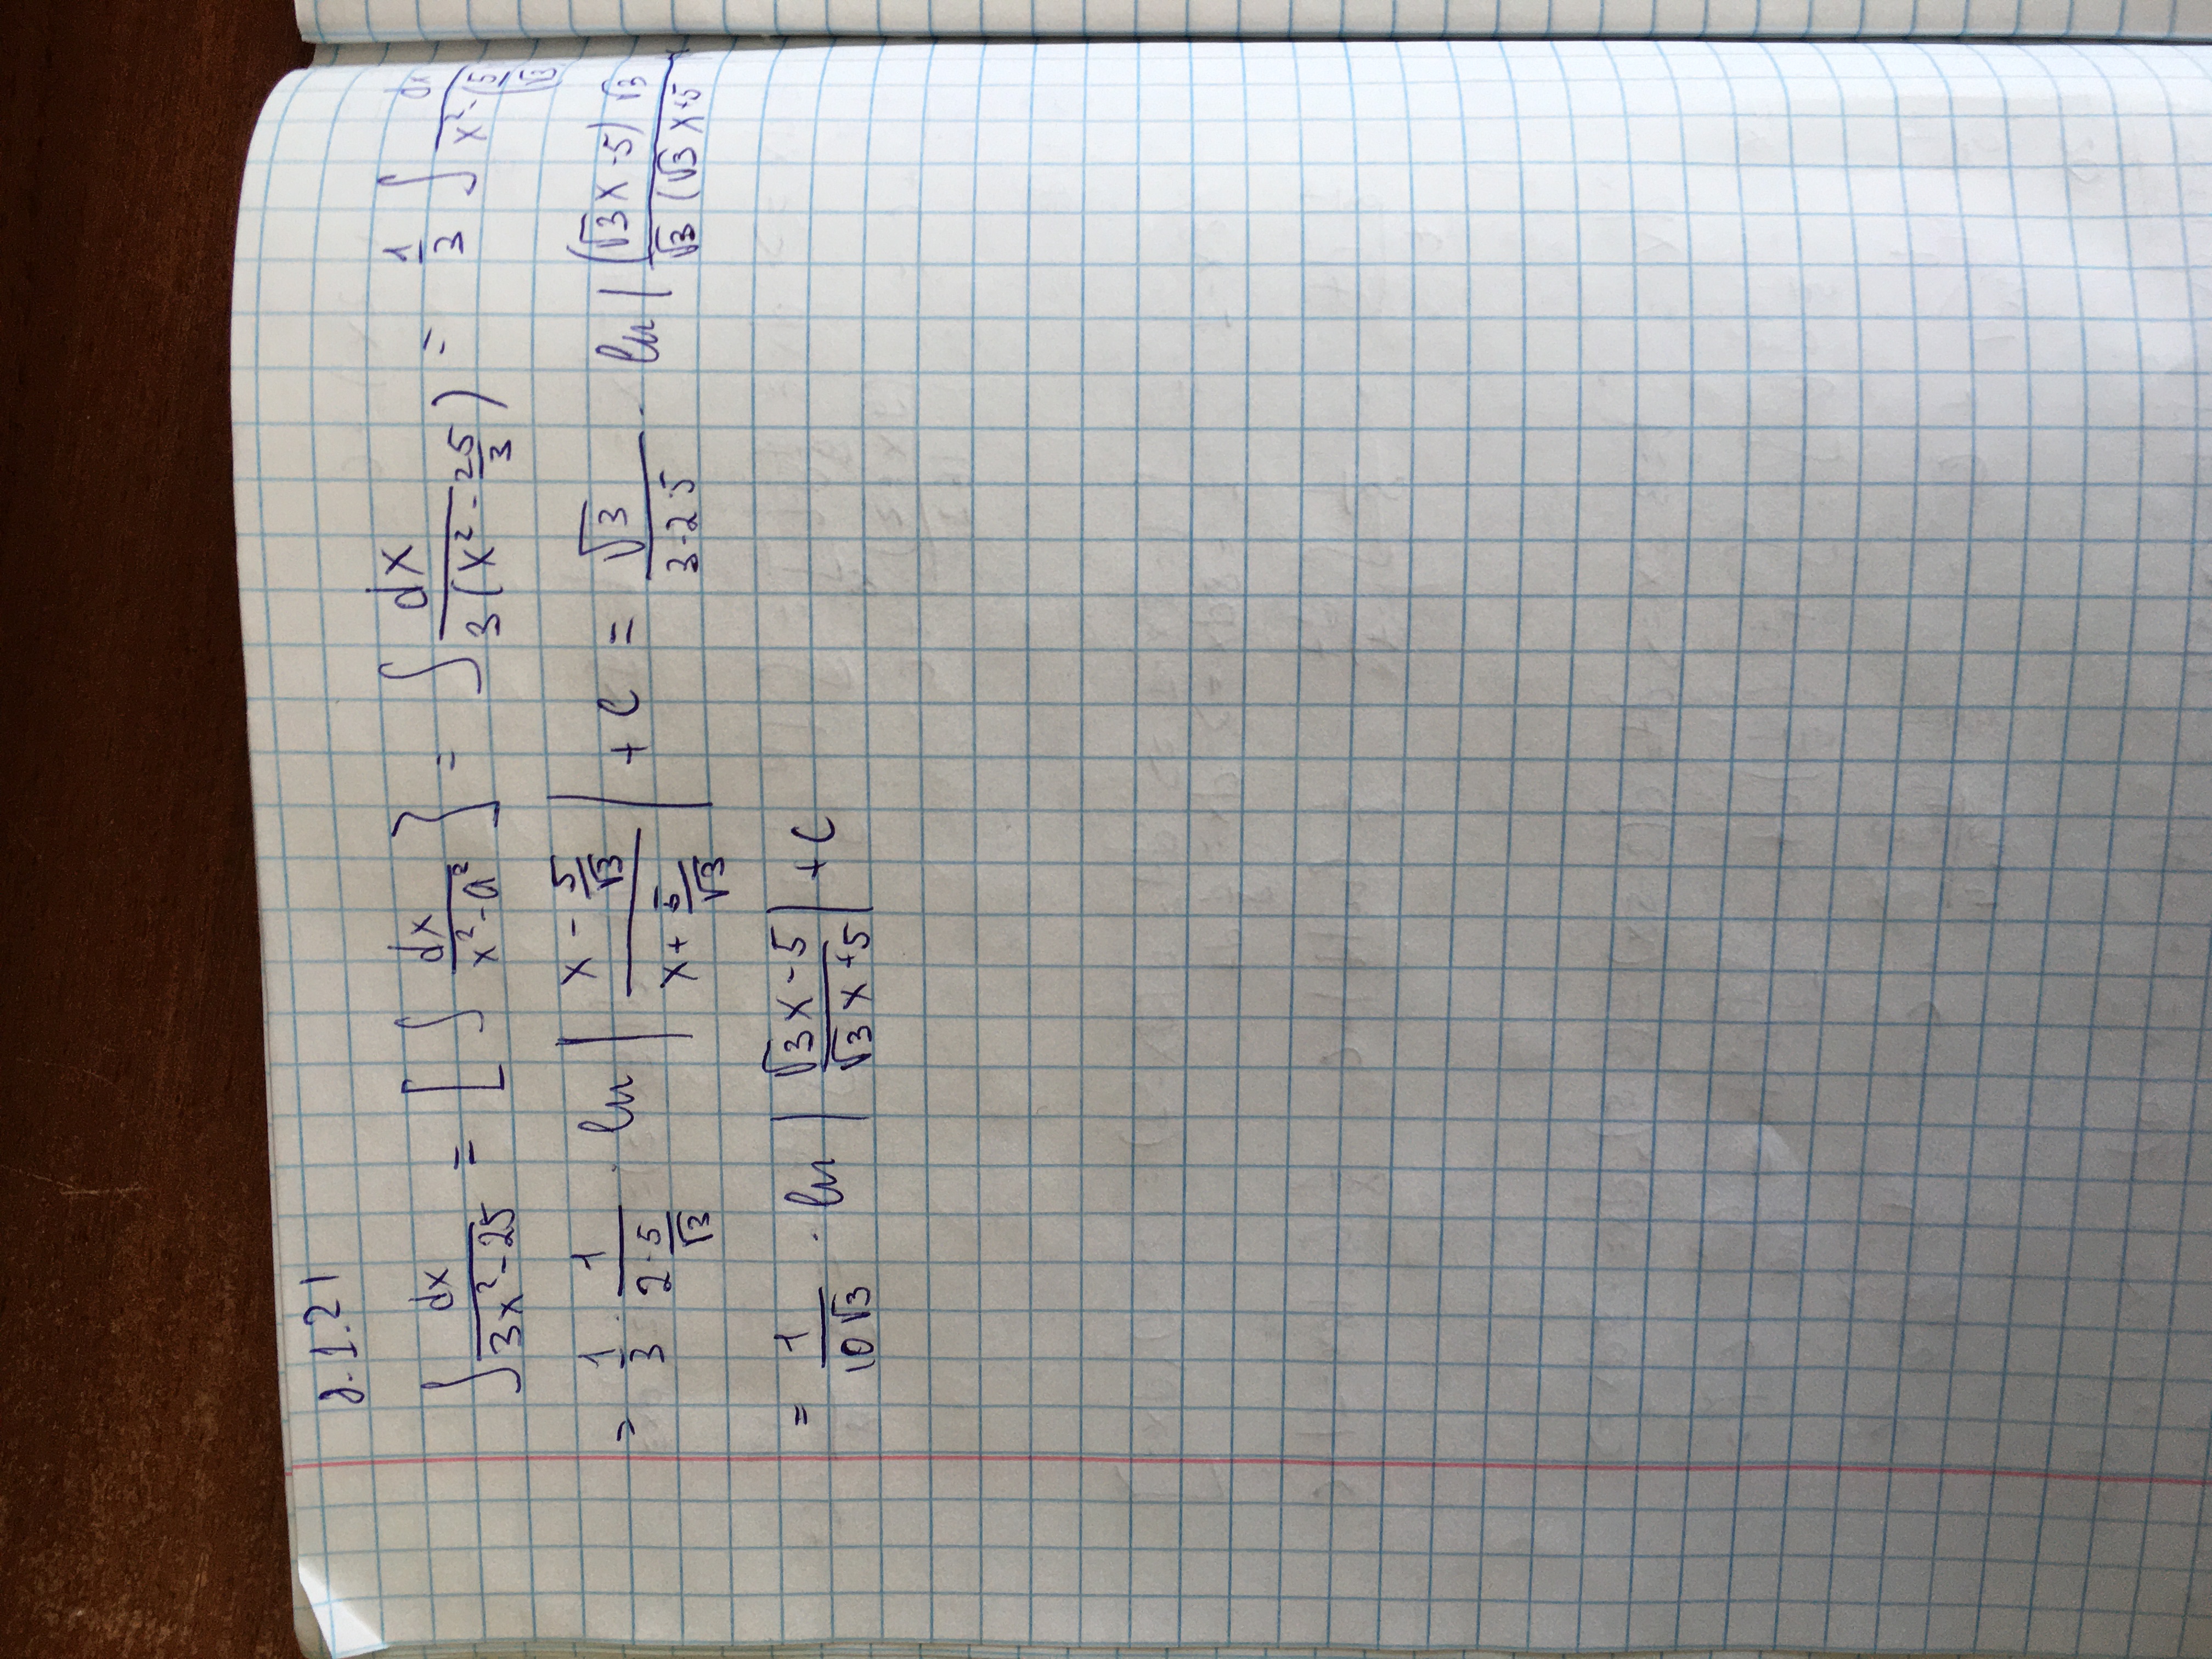 8.1.21
∫ dx/(3x² - 25) = [ ∫ dx/(x² - a²) ] = ∫ dx/(3(x² - 25/3)) = 1/3 ∫ dx/(x² - (5/√3)
= 1/3 · 1/(2 · 5/√3) · ln | (x - 5/√3)/(x + 5/√3) | + C = √3/(3·2·5) · ln | ((√3x - 5) √3)/(√3 (√3x + 5
= 1/(10√3) · ln | (√3x - 5)/(√3x + 5) | + C